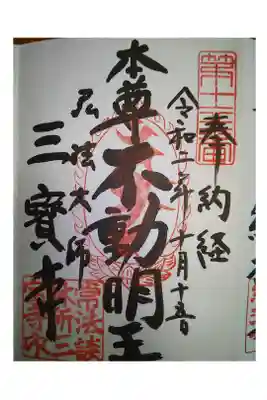 奉納経
令和二年十月十五日
本尊不動明王
弘法大師
三寳寺